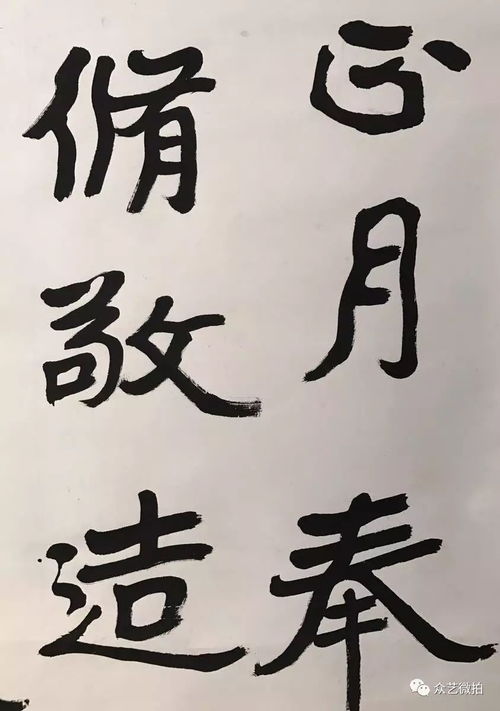 正月奉
脩敬造
众艺微拍